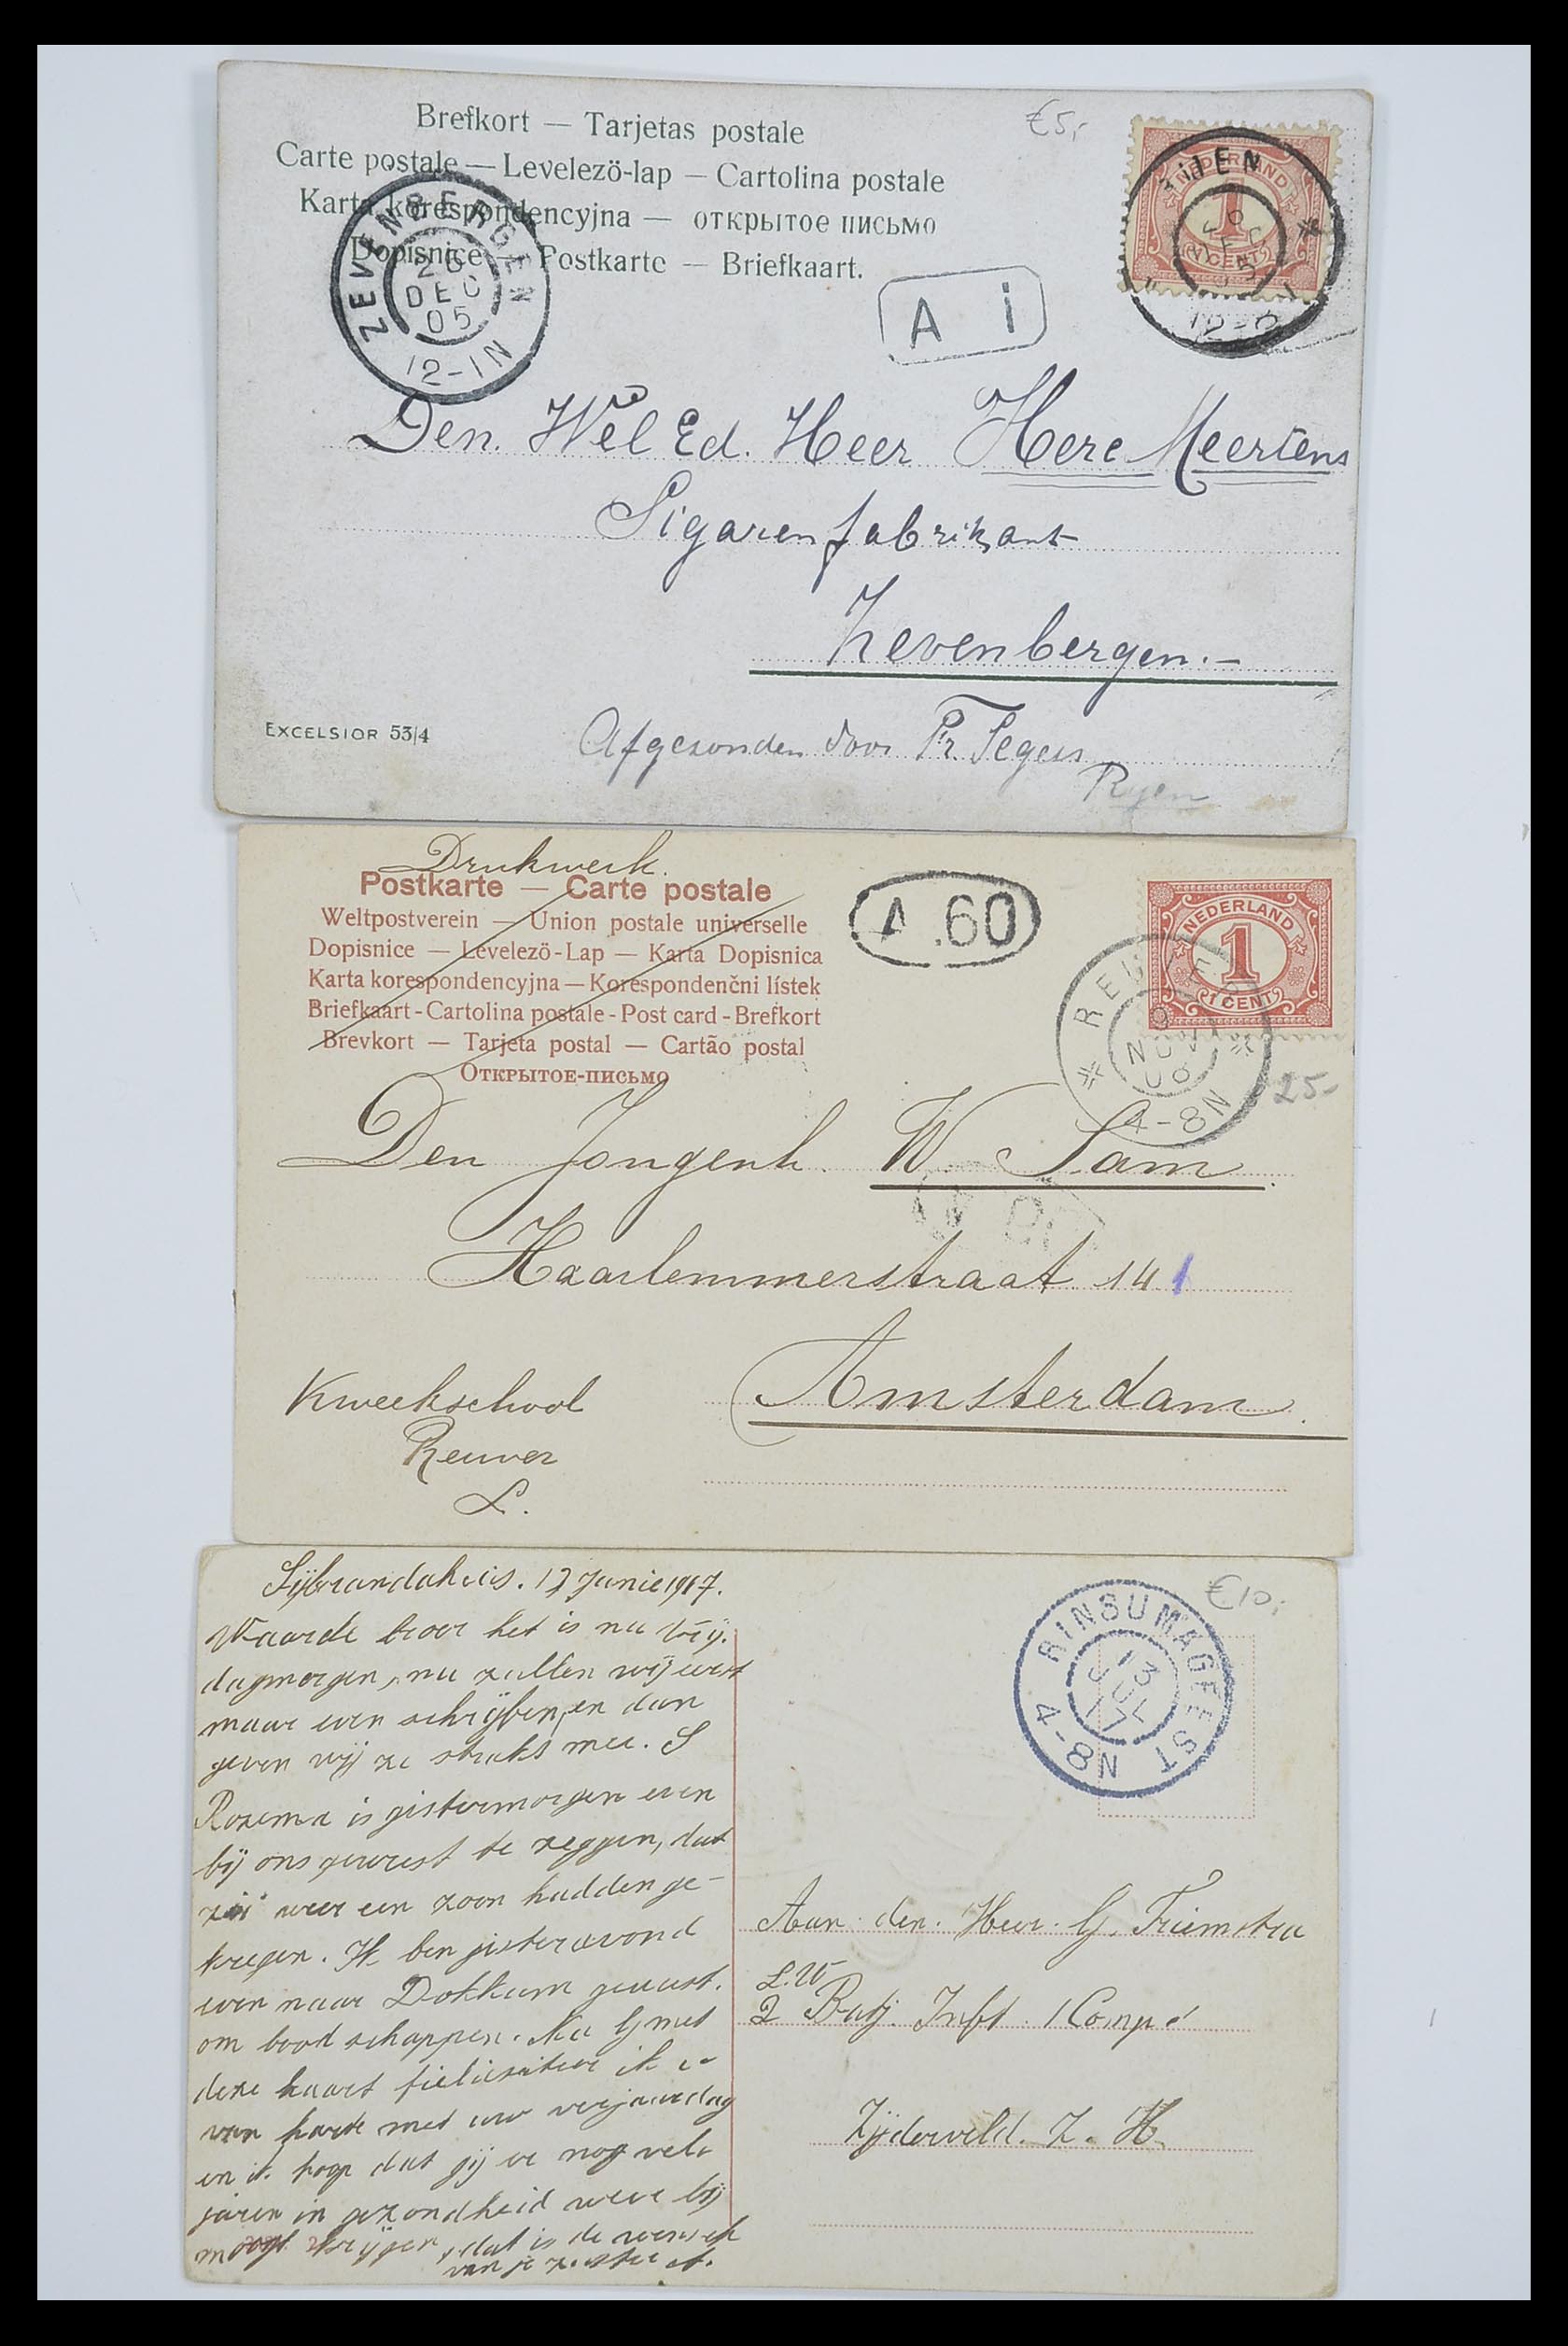 Brefkort — Tarjetas postale
€5,-
Carte postale — Levelezö-lap — Cartolina postale
Karta korespondencyjna — открытое письмо
Dopisnice — Postkarte — Briefkaart.
ZEVENBERGEN
DEC
05
12-1N
NEDERLAND
1
1 CENT
A i
Den. Wel Ed. Heer Here Meertens
Sigarenfabrikant
Zevenbergen.-
EXCELSIOR 53/4
Afgezonden door Fr. Segers
Ryen
Drukwerk.
Postkarte — Carte postale
Weltpostverein — Union postale universelle
Dopisnice — Levelezö-Lap — Karta Dopisnica
Karta korespondencyjna — Korespondenčni lístek
Briefkaart - Cartolina postale - Post card - Brefkort
Brevkort — Tarjeta postal — Cartão postal
Открытое-письмо
A .60
NEDERLAND
1
1 CENT
REUVER
9
NOV
06
4-8N
25-
Den Jongenh. W Sam
Haarlemmerstraat 141
Amsterdam.
Kweekschool
Reuver
L.
Sijbrandahuis. 13 Junie 1917.
Waarde broer het is nu vrij.
dagmorgen, nu zullen wij eerst
maar even schrijven, en dan
geven wij ze straks mee. S
Rozema is gistermorgen even
bij ons geweest te zeggen, dat
zij weer een zoon hadden ge-
kregen. Ik ben gisteravond
even naar Dokkum geweest.
om boodschappen. Nu G met
deze kaart feliciteer ik u
van harte met uw verjaardag
en ik hoop dat gij er nog vele
jaren in gezondheid weer bij
moogt krijgen, dat is de wensch
van je zuster
RINSUMAGEEST
13
JUL
17
4-8N
€10,-
Aan den Heer G. Triemstra
L.W
2 Batj. Inft. 1 Compe
Zijderveld. Z. H.